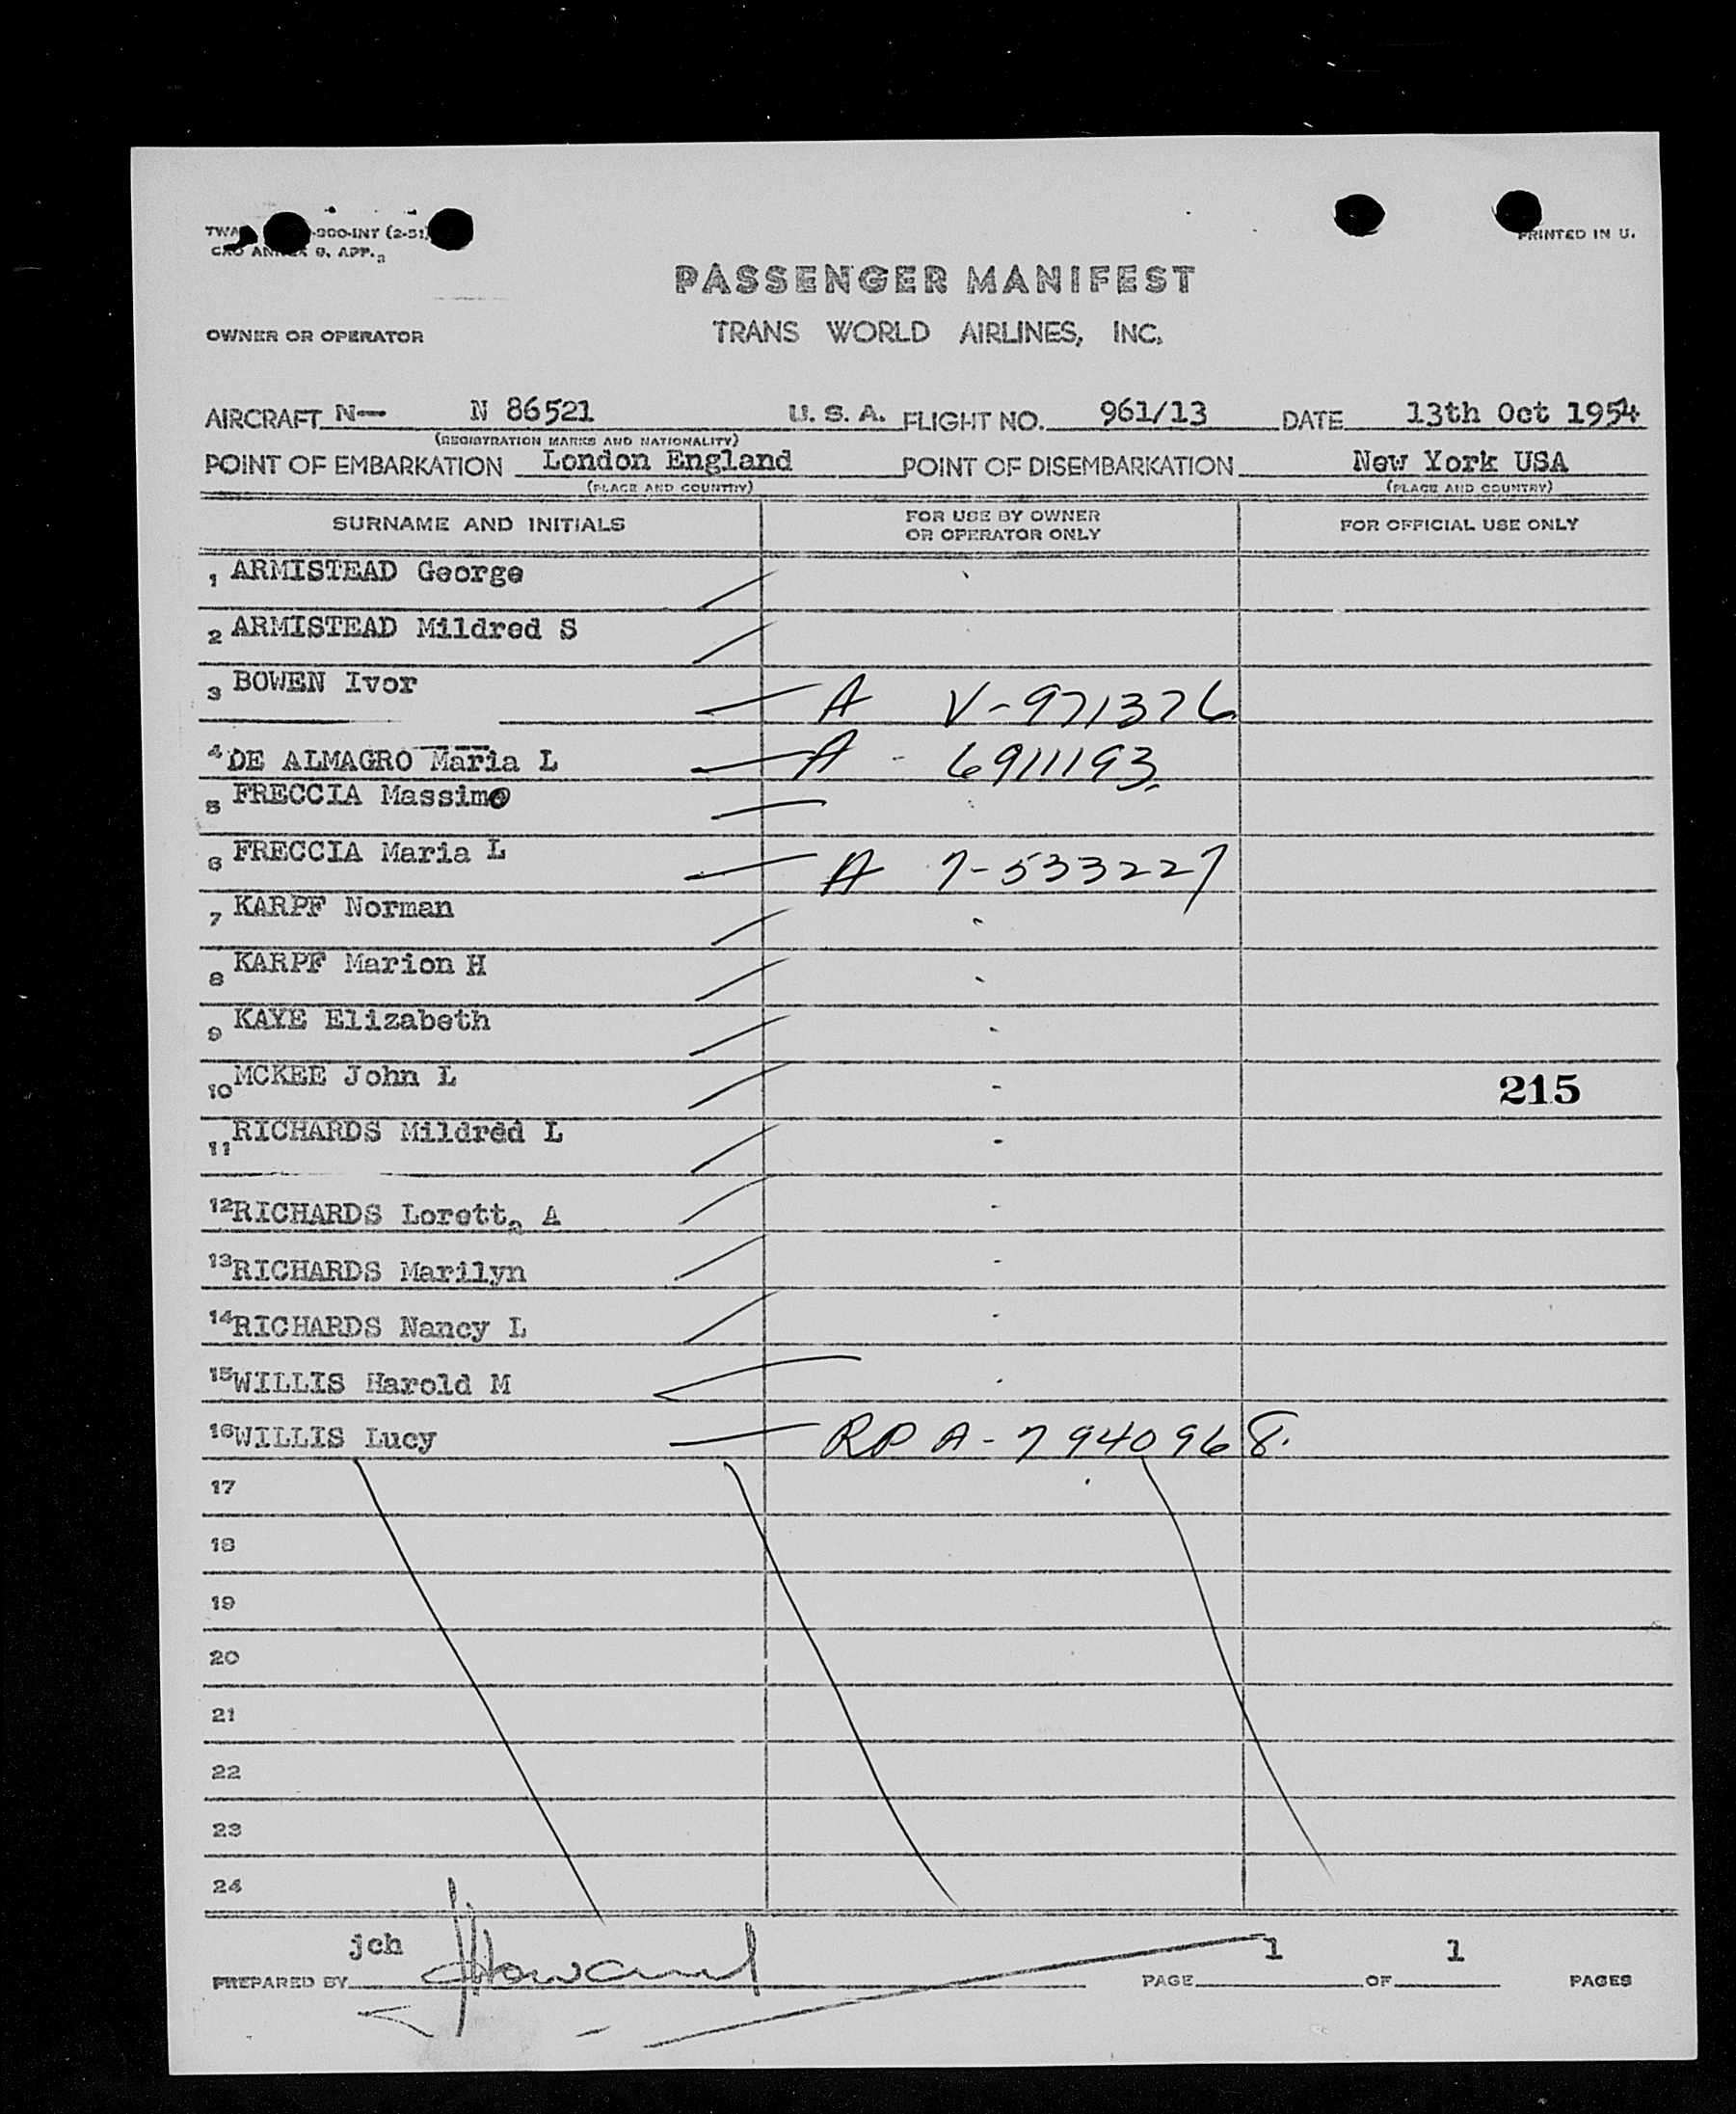 TWA -900-INT (2-51)
CAO ANNEX 9, APP. 3
PRINTED IN U.
PASSENGER MANIFEST
OWNER OR OPERATOR TRANS WORLD AIRLINES, INC.
AIRCRAFT N— N 86521 U. S. A. FLIGHT NO. 961/13 DATE 13th Oct 1954
(REGISTRATION MARKS AND NATIONALITY)
POINT OF EMBARKATION London England POINT OF DISEMBARKATION New York USA
(PLACE AND COUNTRY) (PLACE AND COUNTRY)
SURNAME AND INITIALS FOR USE BY OWNER OR OPERATOR ONLY FOR OFFICIAL USE ONLY
1 ARMISTEAD George
2 ARMISTEAD Mildred S
3 BOWEN Ivor A V-971376
4 DE ALMAGRO Maria L A - 6911193
5 FRECCIA Massimo
6 FRECCIA Maria L A 7-533227
7 KARPF Norman
8 KARPF Marion H
9 KAYE Elizabeth
10 MCKEE John L 215
11 RICHARDS Mildred L
12 RICHARDS Loretta A
13 RICHARDS Marilyn
14 RICHARDS Nancy L
15 WILLIS Harold M
16 WILLIS Lucy RP A-7940968.
17
18
19
20
21
22
23
24
jch
PREPARED BY JHoward PAGE 1 OF 1 PAGES